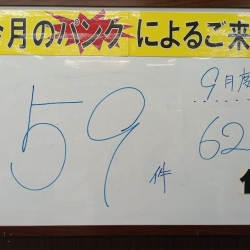 今月のパンクによるご来
59件
9月度
62